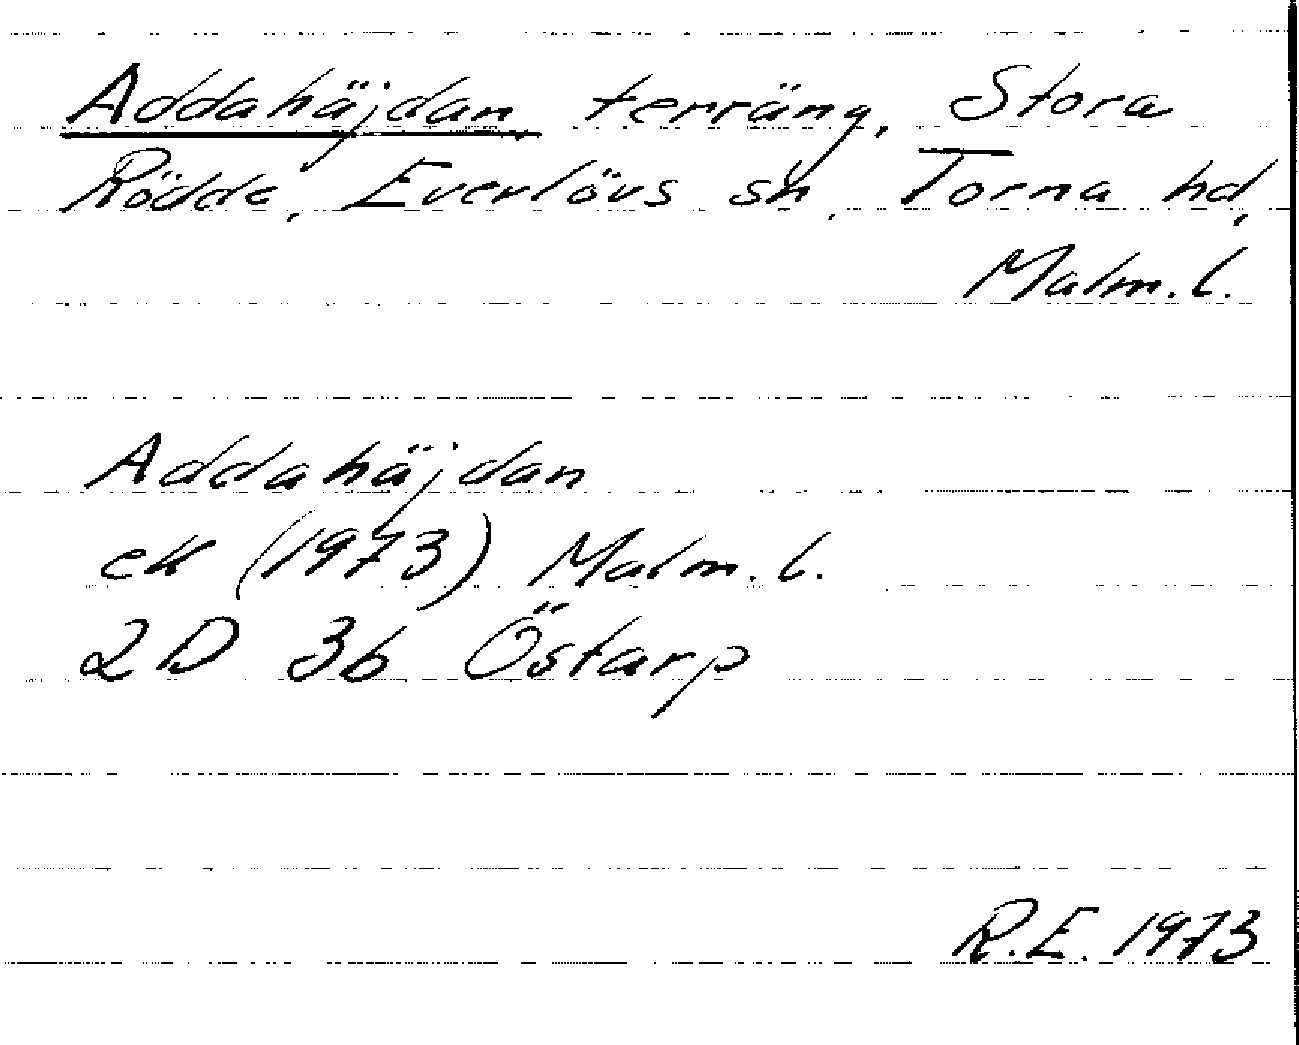 Addahäjdan, terräng, Stora
Rödde, Everlövs sn, Torna hd,
Malm. l.
Addahäjdan
ek (1973) Malm. l.
2D 3b Östarp
R.E. 1973